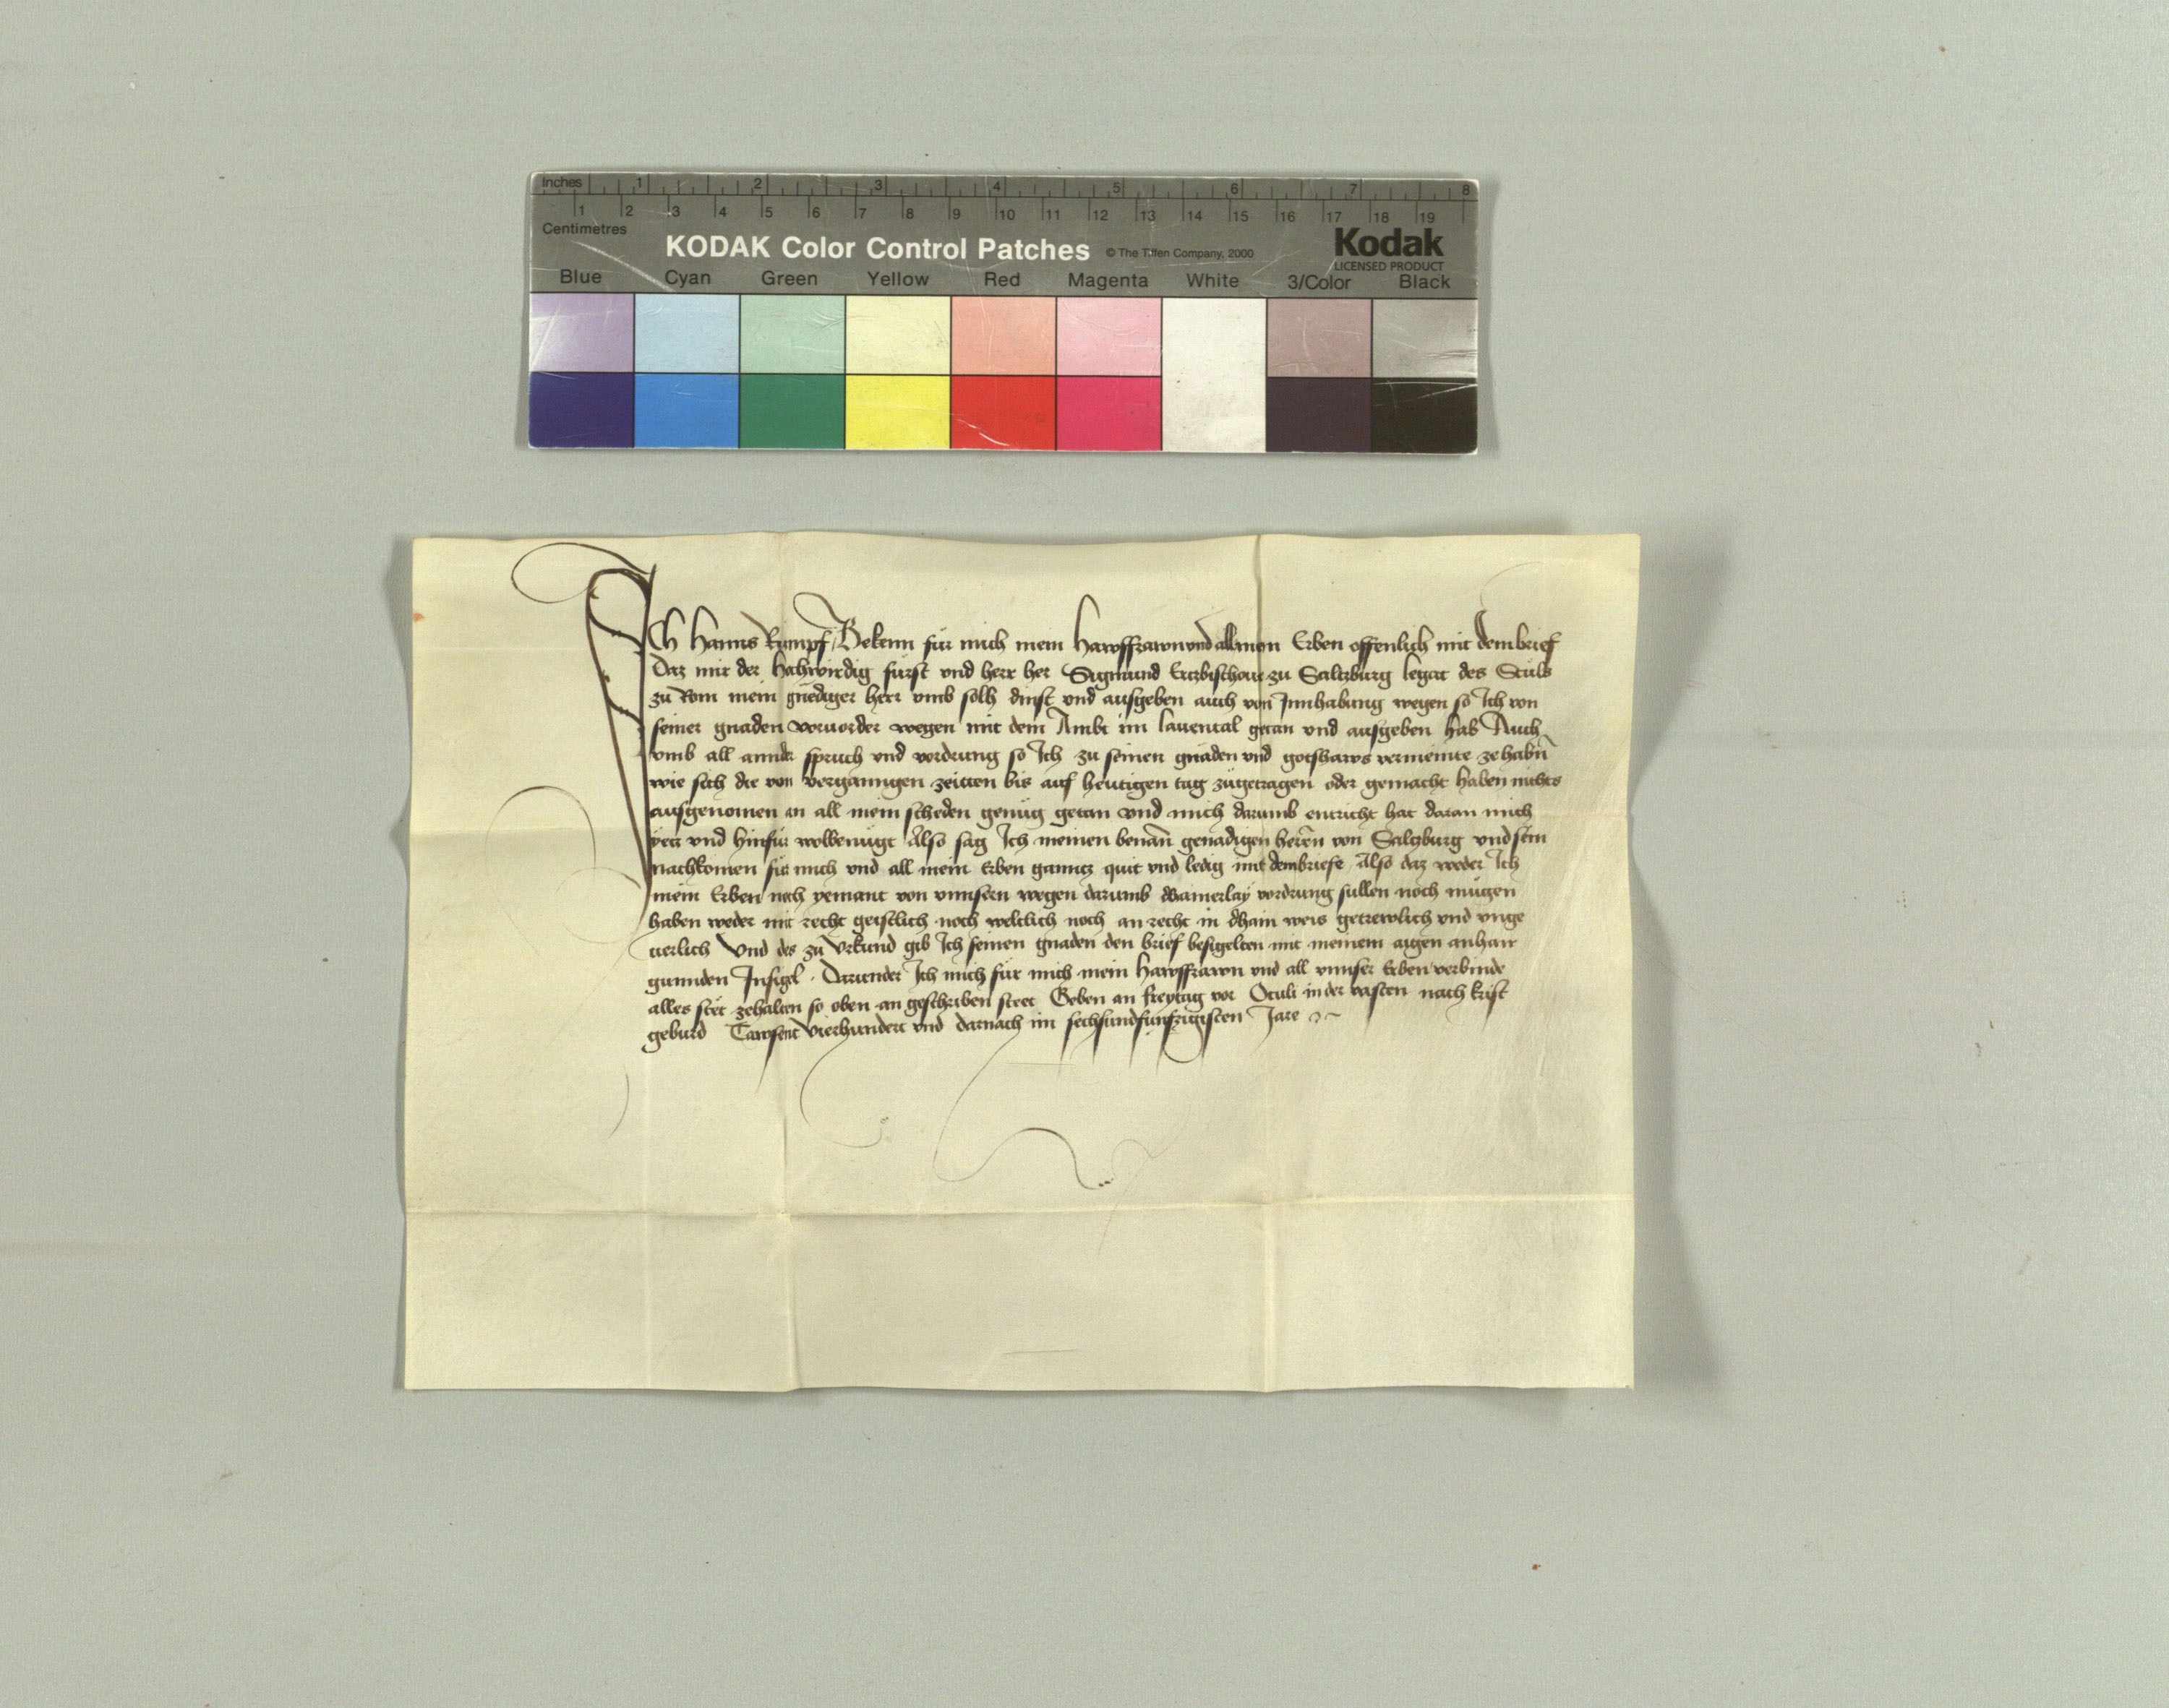 Inches 1 2 3 4 5 6 7 8
1 2 3 4 5 6 7 8 9 10 11 12 13 14 15 16 17 18 19
Centimetres
KODAK Color Control Patches © The Tiffen Company, 2000 Kodak
LICENSED PRODUCT
Blue Cyan Green Yellow Red Magenta White 3/Color Black
Ich Hanns Rumpf Bekenn für mich mein Hawsfrawn und all mein Erben offenlich mit dem brief
Daz mir der Hochwirdig fürst und herr her Sigmund Ertzbischoue zu Saltzburg legat des Stuls
zu Rom mein gnediger herr umb solh dinst und ausgeben auch von Innhabung wegen so Ich von
seiner gnaden voruorder wegen mit dem Ambt im lauental getan und ausgeben hab Auch
umb all annder spruch und vordrung so Ich zu seinen gnaden und gotshaws vermeinte ze habn̄
wie sich die von verganngen zeitten bis auf heutigen tag zugetragen oder gemacht haben nichts
ausgenomen an all mein scheden genüg getan und mich darumb entricht hat daran mich
yetz und hinfür wolbenügt Also sag Ich meinen benan̄ genädigen herrn̄ von Saltzburg und sein
nachkomen für mich und all mein Erben ganntz quit und ledig mit dem briefe Also daz weder Ich
mein Erben noch yemant von unnsern wegen darumb dhainerlay vordrung sullen noch mugen
haben weder mit recht geistlich noch weltlich noch an recht in dhain weis getrewlich und unge
uerlich Und des zu Urkund gib Ich seinen gnaden den brief besigelten mit meinem aigen anhan
gunnden Insigel. Darunder Ich mich für mich mein Hawsfrawn und all unnser Erben verbinde
alles stet zehalten so oben an geschriben steet Geben an freytag vor Oculi in der vasten nach krist
geburd Tawsent vierhundert und darnach im sechsundfunfzigisten Jare